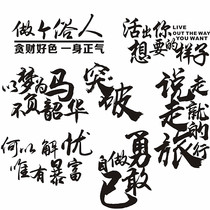 做个俗人
贪财好色 一身正气
活出你
想要的样子
LIVE
OUT THE WAY
YOU WANT
以梦为马
不负韶华
突破
说走就走的旅行
何以解忧
唯有暴富
做自己
勇敢